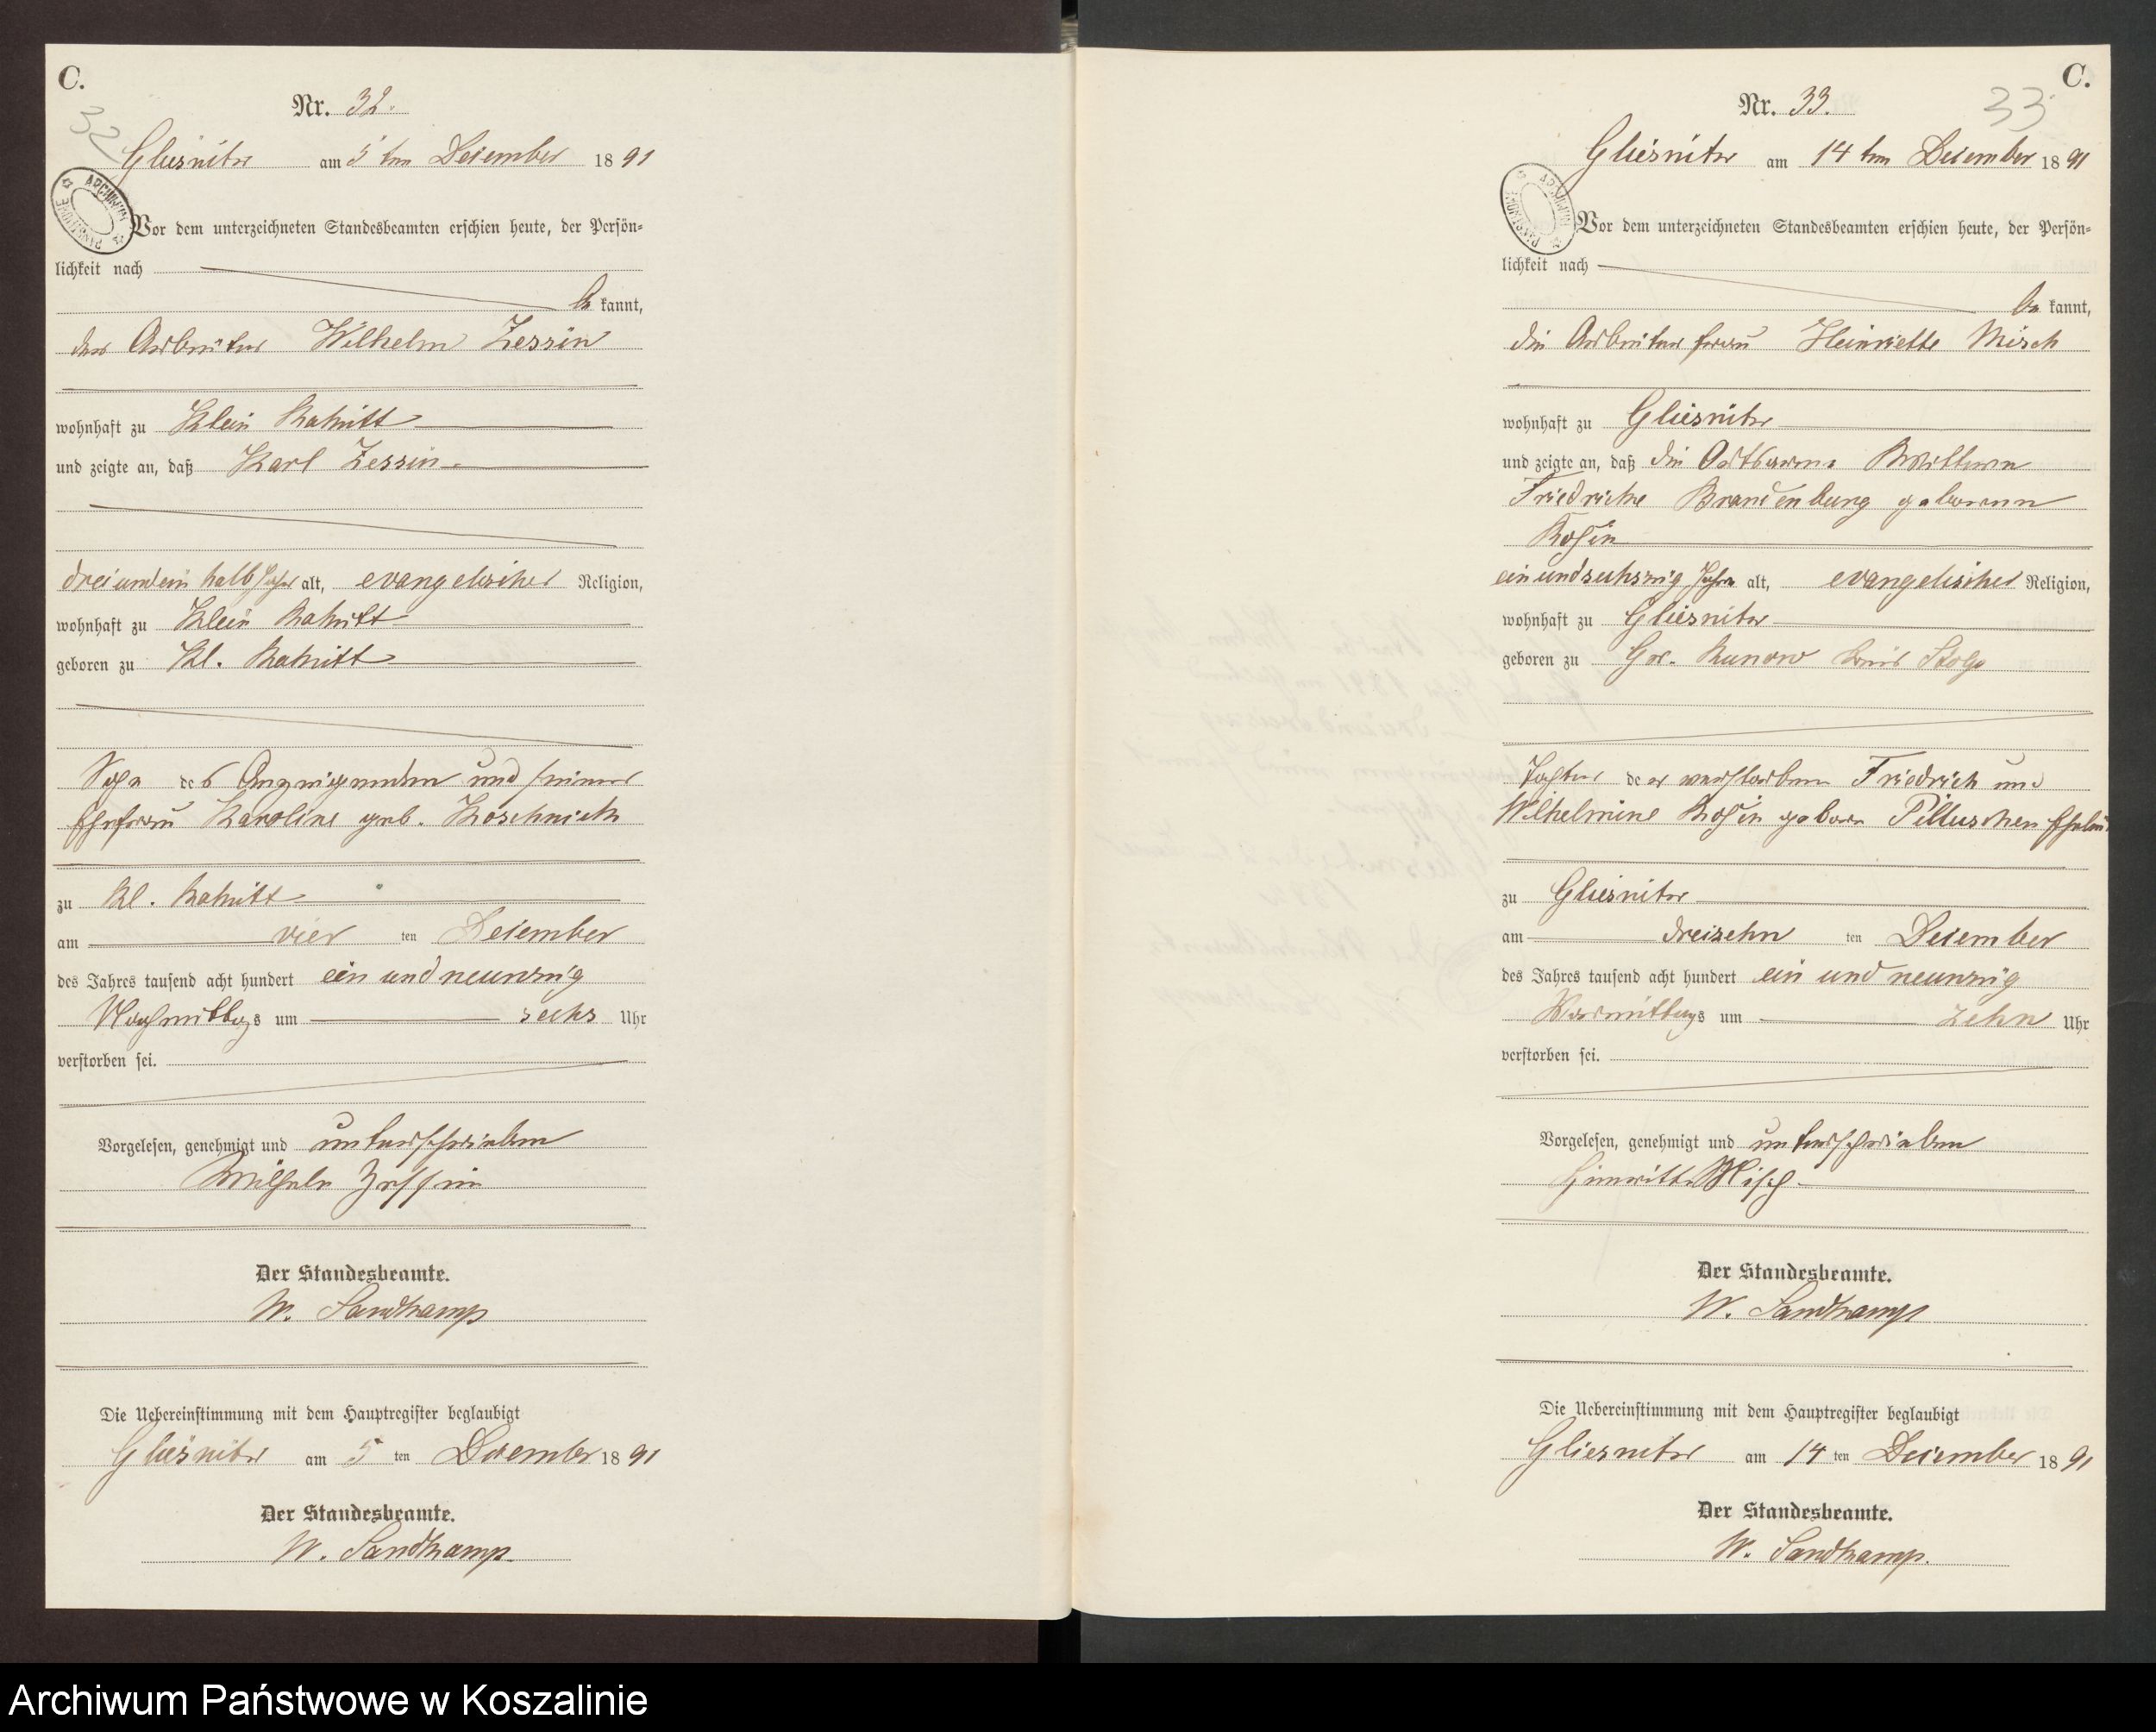 C.
Nr. 32.
32
Gliesnitz am 5ten Dezember 1891
ARCHIWUM PAŃSTWOWE
Vor dem unterzeichneten Standesbeamten erschien heute, der Persön-
lichkeit nach
be kannt,
der Arbeiter Wilhelm Zessin
wohnhaft zu Klein Rakitt
und zeigte an, daß Karl Zessin
drei undein halb Jahr alt, evangelischer Religion,
wohnhaft zu Klein Rakitt
geboren zu Kl. Rakitt
Sohn des Anzeigenden und seiner
Ehefrau Karoline geb. Koschnick
zu Kl. Rakitt
am vier ten Dezember
des Jahres tausend acht hundert ein und neunzig
Nachmittags um sechs Uhr
verstorben sei.
Vorgelesen, genehmigt und unterschrieben
Wilhelm Zessin
Der Standesbeamte.
W. Sandkamp
Die Uebereinstimmung mit dem Hauptregister beglaubigt
Gliesnitz am 5 ten Dezember 1891
Der Standesbeamte.
W. Sandkamp.
C.
Nr. 33.
33
Gliesnitz am 14ten Dezember 1891
ARCHIWUM PAŃSTWOWE
Vor dem unterzeichneten Standesbeamten erschien heute, der Persön-
lichkeit nach
be kannt,
die Arbeiterfrau Heinriette Misch
wohnhaft zu Gliesnitz
und zeigte an, daß die Ortsarme Wittwe
Friedricke Brandenburg geborene
Kosin
ein undsechszig Jahre alt, evangelischer Religion,
wohnhaft zu Gliesnitz
geboren zu Gr. Runow Kreis Stolp
Tochter der verstorbenen Friedrich und
Wilhelmine Kosin geboren
zu Gliesnitz
am dreizehn ten Dezember
des Jahres tausend acht hundert ein und neunzig
Vormittags um zehn Uhr
verstorben sei.
Vorgelesen, genehmigt und unterschrieben
Heinriette Misch
Der Standesbeamte.
W. Sandkamp
Die Uebereinstimmung mit dem Hauptregister beglaubigt
Gliesnitz am 14 ten Dezember 1891
Der Standesbeamte.
W. Sandkamp.
Archiwum Państwowe w Koszalinie